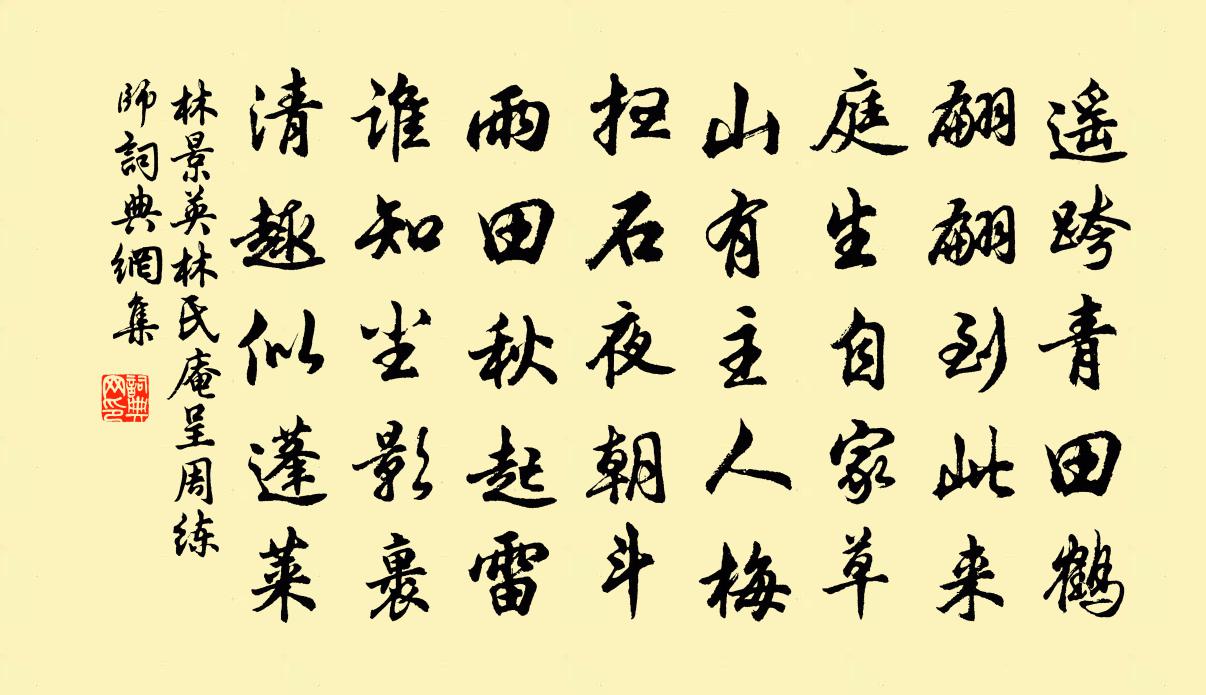 遥跨青田鹤
翩翩到此来
庭生自家草
山有主人梅
扫石夜朝斗
雨田秋起雷
谁知尘影裏
清趣似蓬莱
林景英林氏庵呈周练
師詞典網集
詞典网印